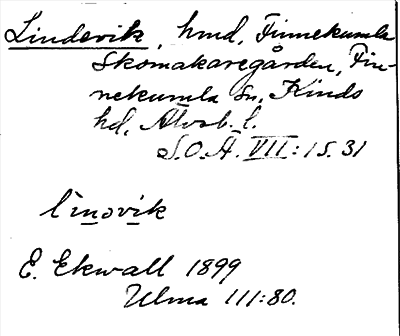 Lindevik, hmd, Finnekumla
Skomakaregården, Fin-
nekumla sn, Kinds
hd, Älvsb. l.
S.O.Ä. VII:1 s. 31
lìnovik
E. Ekwall 1899
Ulma III:80.